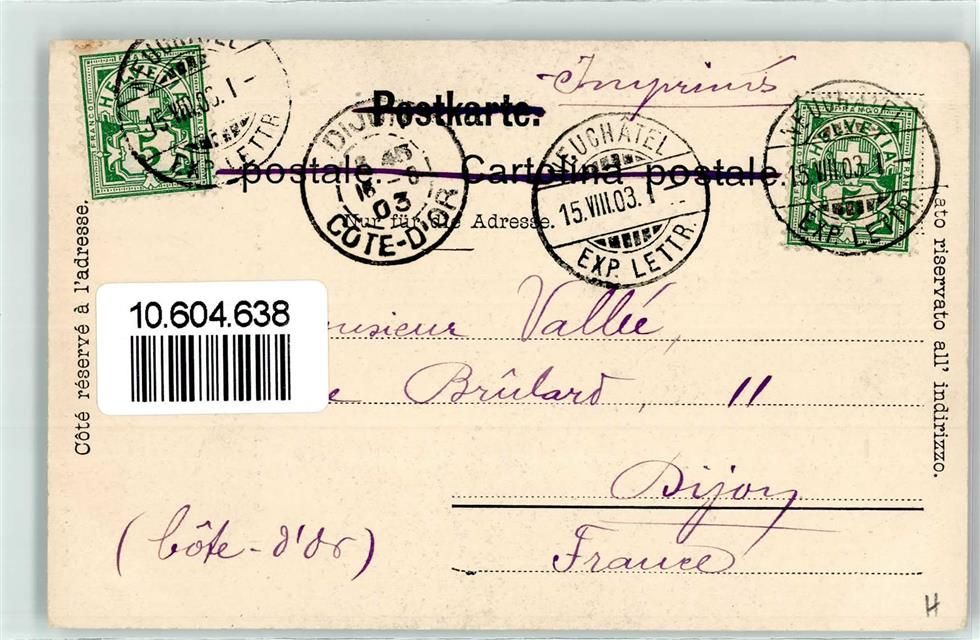 Imprimés
Postkarte.
postale Cartolina postale.
Nur für die Adresse.
Côté réservé à l'adresse.
Lato riservato all' indirizzo.
HELVETIA
FRANCO
5
15.VIII.03. I –
EXP. LETTR.
DIJON
16 - 8
03
CÔTE-D'OR
NEUCHÂTEL
15.VIII.03. I –
EXP. LETTR.
NEUCHÂTEL
15.VIII.03. I
EXP. LETTR.
FRANCO
HELVETIA
5
10.604.638
Vallée,
Brûlard, 11
Dijon
(Côte-d'Or)
France
H